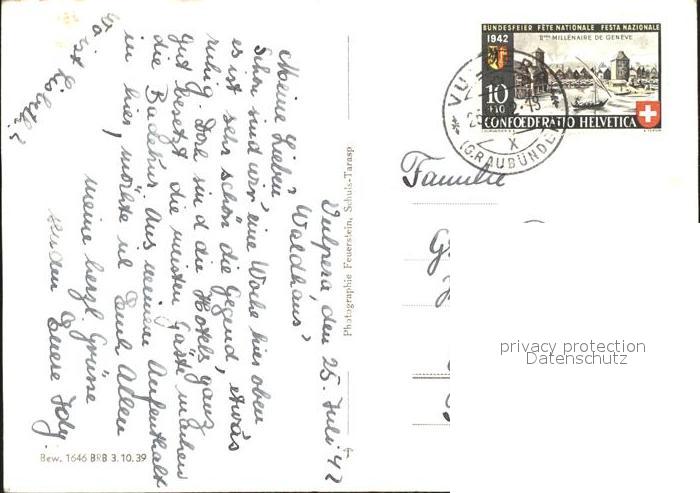 Vulpera, den 25. Juli 42
"Waldhaus"
Meine Lieben
Schon sind wir eine Woche hier oben
es ist sehr schön die Gegend, etwas
ruhig. Dafür sind die Hotels ganz
gut besetzt die meisten Gäste machen
die Badekur. Aus meinem Aufenthalt
in hier, möchte ich Euch Allen
meine herzl. Grüsse
senden Euere Idy.
Photographie Feuerstein, Schuls-Tarasp
Bew. 1646 BRB 3.10.39
BUNDESFEIER FÊTE NATIONALE FESTA NAZIONALE
1942
IIme MILLÉNAIRE DE GENÈVE
10
+10
CONFOEDERATIO HELVETICA
VULPERA
(GRAUBÜNDEN)
X
Familie
privacy protection
Datenschutz